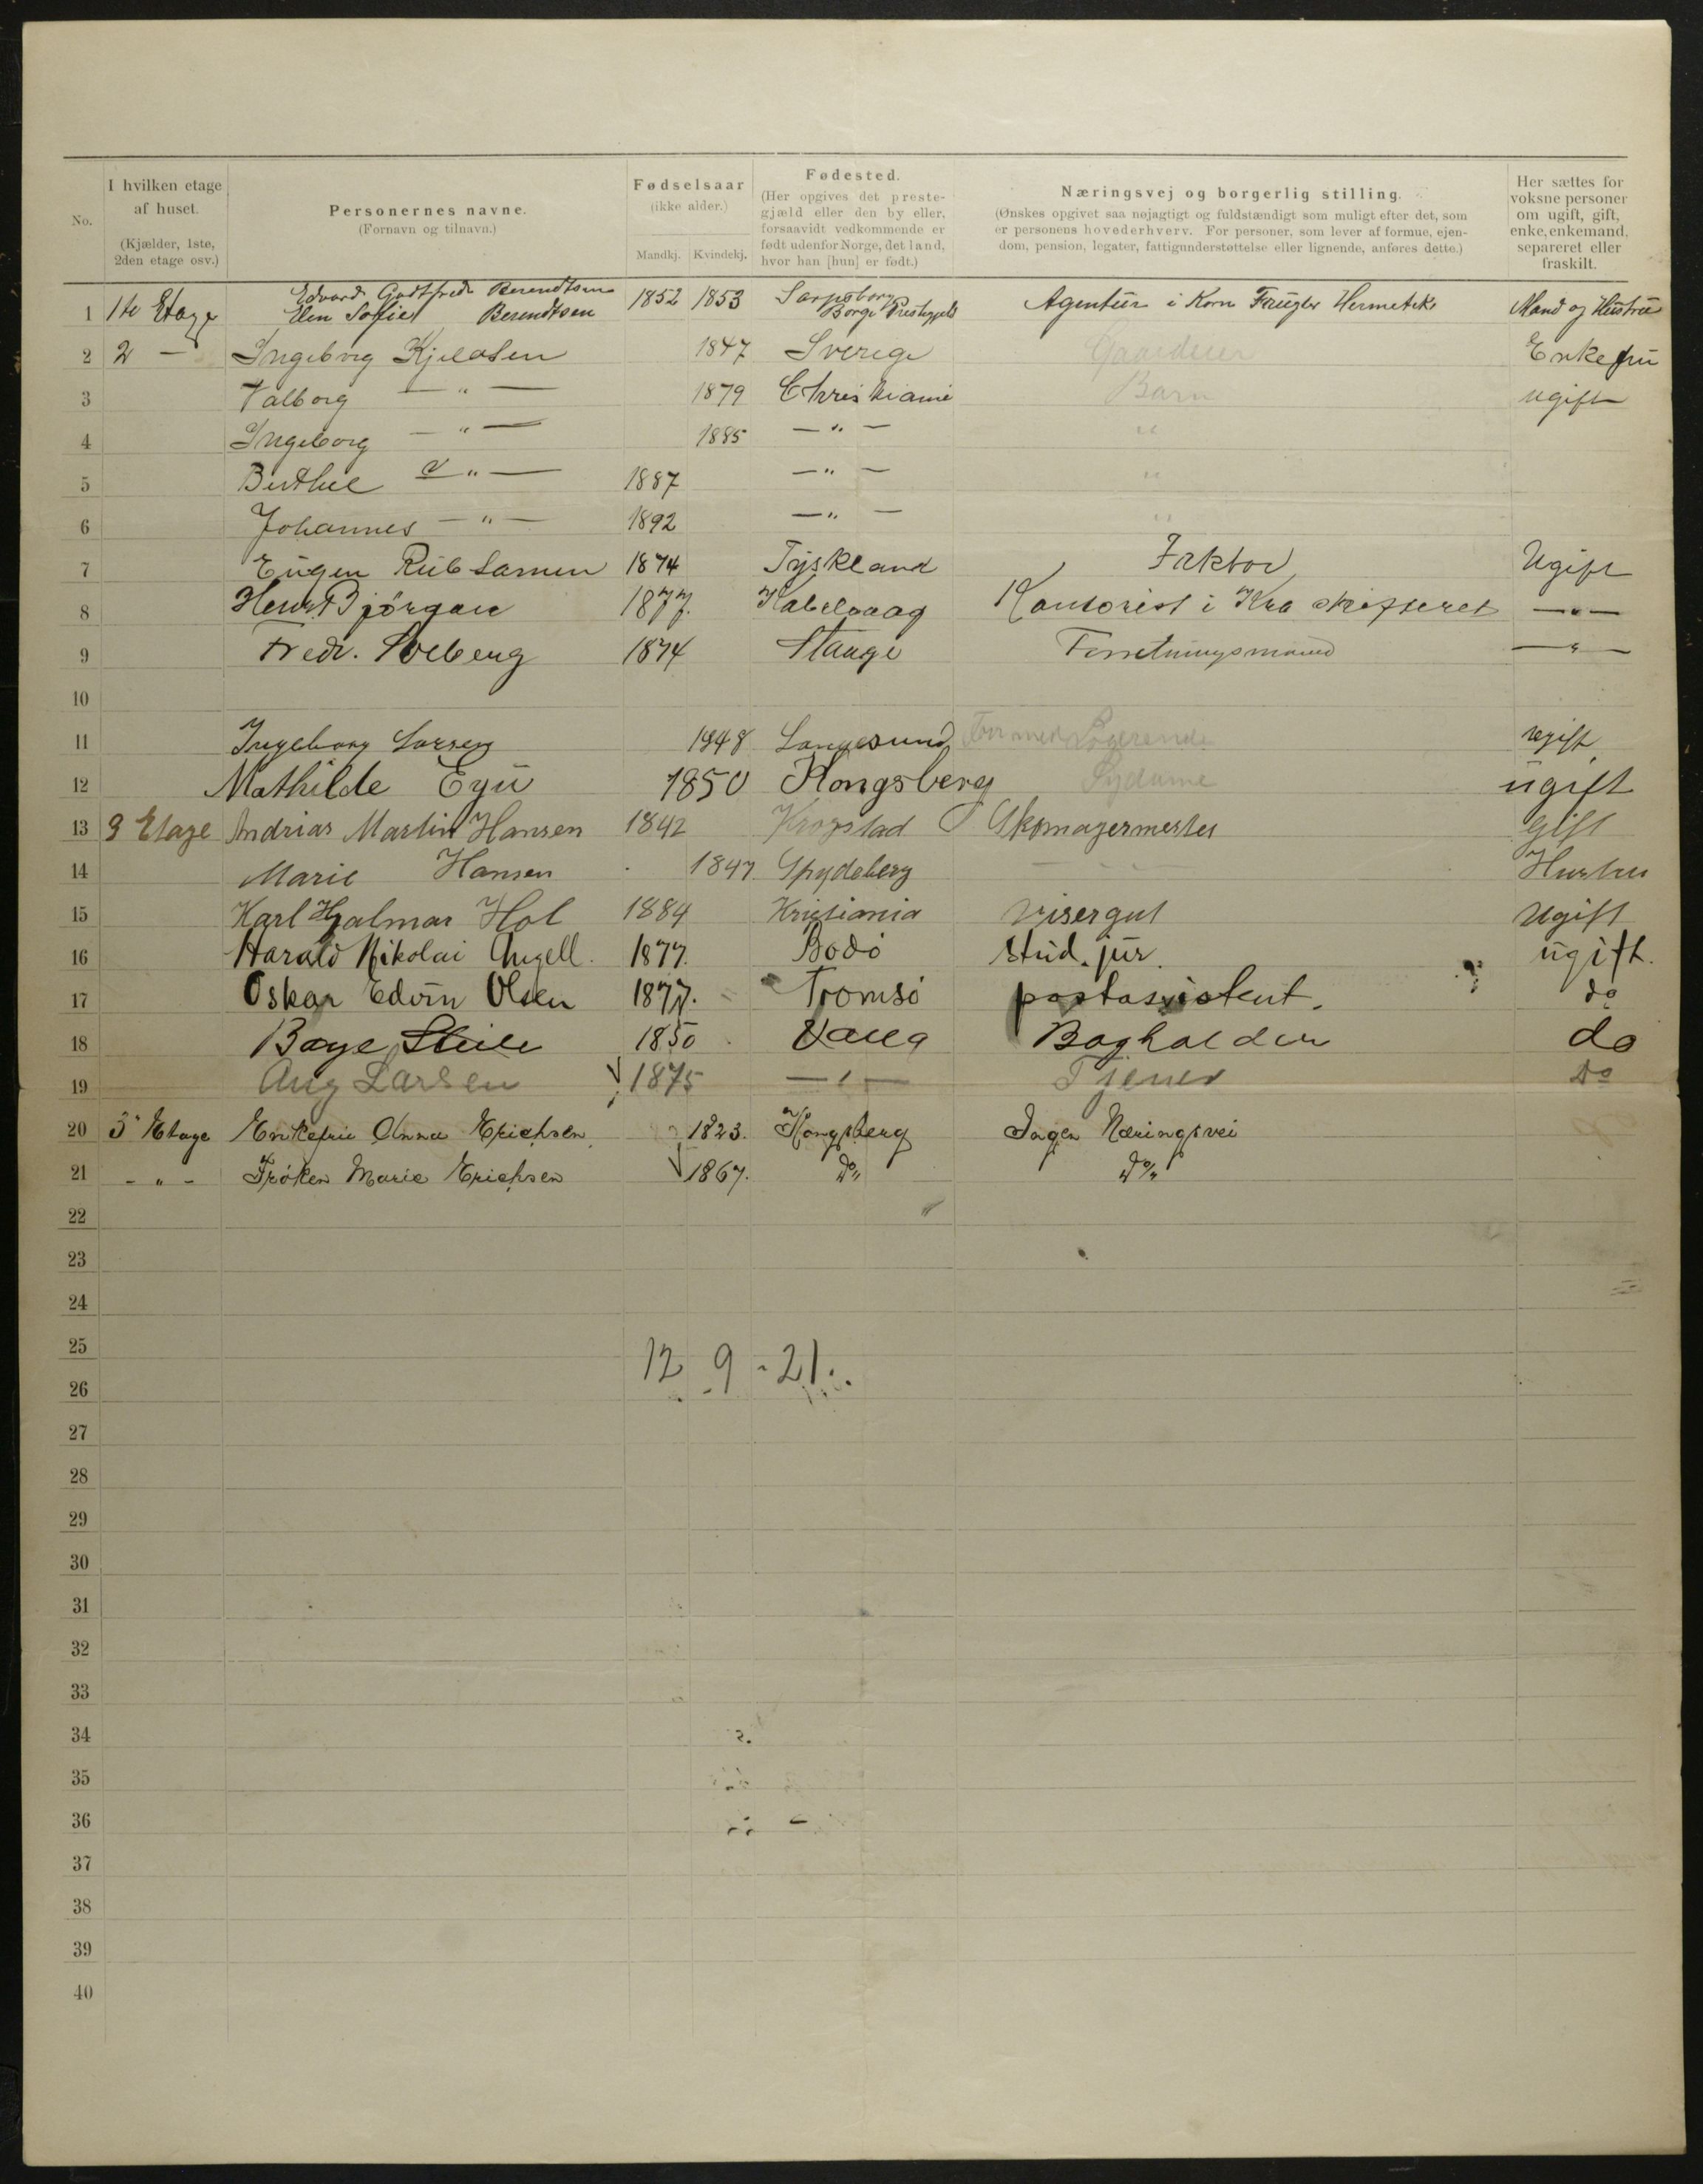 No.
I hvilken etage af huset.
(Kjælder, 1ste, 2den etage osv.)
Personernes navne.
(Fornavn og tilnavn.)
Fødselsaar
(ikke alder.)
Mandkj. Kvindekj.
Fødested.
(Her opgives det preste-
gjæld eller den by eller,
forsaavidt vedkommende er
født udenfor Norge, det land,
hvor han [hun] er født.)
Næringsvej og borgerlig stilling.
(Ønskes opgivet saa nøjagtigt og fuldstændigt som muligt efter det, som
er personens hovederhverv. For personer, som lever af formue, ejen-
dom, pension, legater, fattigunderstøttelse eller lignende, anføres dette.)
Her sættes for
voksne personer
om ugift, gift,
enke, enkemand,
separeret eller
fraskilt.
Edvard Godtfred Berendtsen Sarpsborg
1 1te Etage Elen Sofie Berendtsen 1852 1853 Borge Prestegjeld Agentur i Korn Frugter Hermetik Mand og Hustru
2 2 — Ingeborg Kjelsen 1847 Sverige Gaardeier Enkefru
3 Valborg — " — 1879 Christiania Barn ugift
4 Ingeborg — " — 1885 — " — "
5 Berthel — " — 1887 — " — "
6 Johannes — " — 1892 — " — "
7 Eugen Rübsamen 1874 Tyskland Faktor Ugift
8 Henr. Bjørgan 1877. Kabelvaag Kontorist i Kra skifteret — " —
9 Fredr. Solberg 1874 Stange Forretningsmand — " —
10
11 Ingeborg Larsen 1848 Langesund Logerende ugift
12 Mathilde Egu 1850 Kongsberg Sydame ugift
13 3 Etage Andrias Martin Hansen 1842 Krogstad Skomagermester Gift
14 Marie Hansen 1847 Spydeberg Hustru
15 Karl Hjalmar Hol 1884 Kristiania Visergut Ugift
16 Harald Nikolai Angell. 1877. Bodø stud. jur. ugift.
17 Oskar Edvin Olsen 1877. Tromsø postassistent. do
18 Baye 1850 Vang Bogholder do
19 Aug Larsen 1875 — " — Tjener Do
20 3 Etage Enkefru Anna Erichsen 1823. Kongsberg Ingen Næringsvei
21 - " - Frøken Marie Erichsen 1867. Do " Do "
22
23
24
25
12 9 - 21.
26
27
28
29
30
31
32
33
34
35
36
37
38
39
40